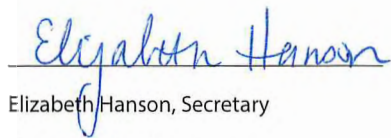 Elizabeth Hanson
Elizabeth Hanson, Secretary